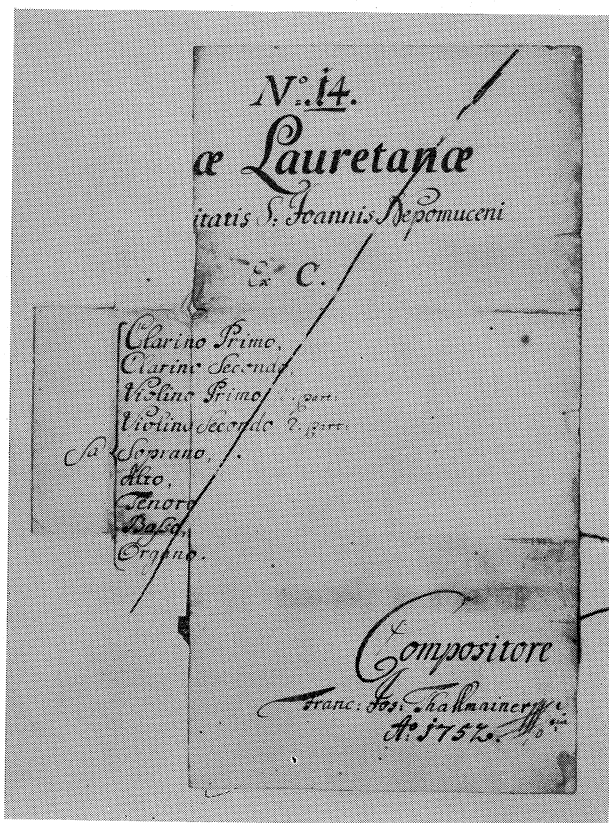 No: 14.
æ Lauretanæ
itatis S: Joannis Nepomuceni
Ex C.
Clarino Primo,
Clarino Secondo,
Violino Primo 2. part:
Violino Secondo 2. part:
Soprano,
Alto,
Tenore
Basso,
Organo.
Compositore
Franc: Jos: Thallmainer
Ao. 1757.